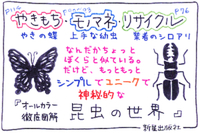 P14 P26
やきもち・モノマネ・リサイクル
やきの蝶 上手な幼虫 賢者のシロアリ
なんだかちょっと
ぼくらと似ている。
だけど、もっともっと
シンプルでユニークで
神秘的な
『オールカラー
徹底図解
昆虫の世界』
新星出版社